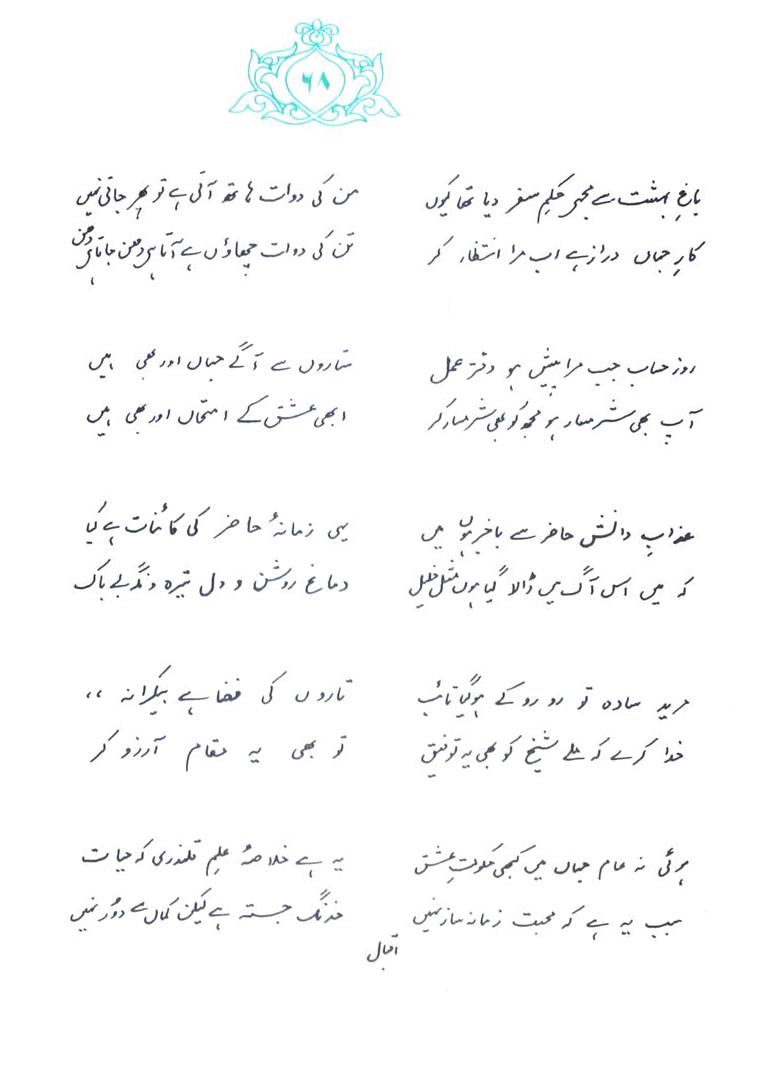 ۶۸
باغِ بہشت سے مجھے حکمِ سفر دیا تھا کیوں
کارِ جہاں دراز ہے اب مرا انتظار کر
من کی دولت ہاتھ آتی ہے تو پھر جاتی نہیں
تن کی دولت چھاؤں ہے آتا ہے دھن جاتا ہے دھن
روز حساب جب مرا پیش ہو دفتر عمل
آپ بھی شرمسار ہو مجھ کو بھی شرمسار کر
ستاروں سے آگے جہاں اور بھی ہیں
ابھی عشق کے امتحاں اور بھی ہیں
عذابِ دانش حاضر سے باخبر ہوں میں
کہ میں اس آگ میں ڈالا گیا ہوں مثل خلیل
یہی زمانۂ حاضر کی کائنات ہے کیا
دماغ روشن و دل تیرہ و نگہ بے باک
مرید سادہ تو رو رو کے ہوگیا تائب
خدا کرے کہ ملے شیخ کو بھی یہ توفیق
تاروں کی فضا ہے بیکرانہ ،،
تو بھی یہ مقام آرزو کر
ہوئی نہ عام جہاں میں کبھی حکومتِ عشق
سبب یہ ہے کہ محبت زمانہ ساز نہیں
یہ ہے خلاصۂ علمِ قلندری کہ حیات
خدنگ جستہ ہے لیکن کماں سے دور نہیں
اقبال